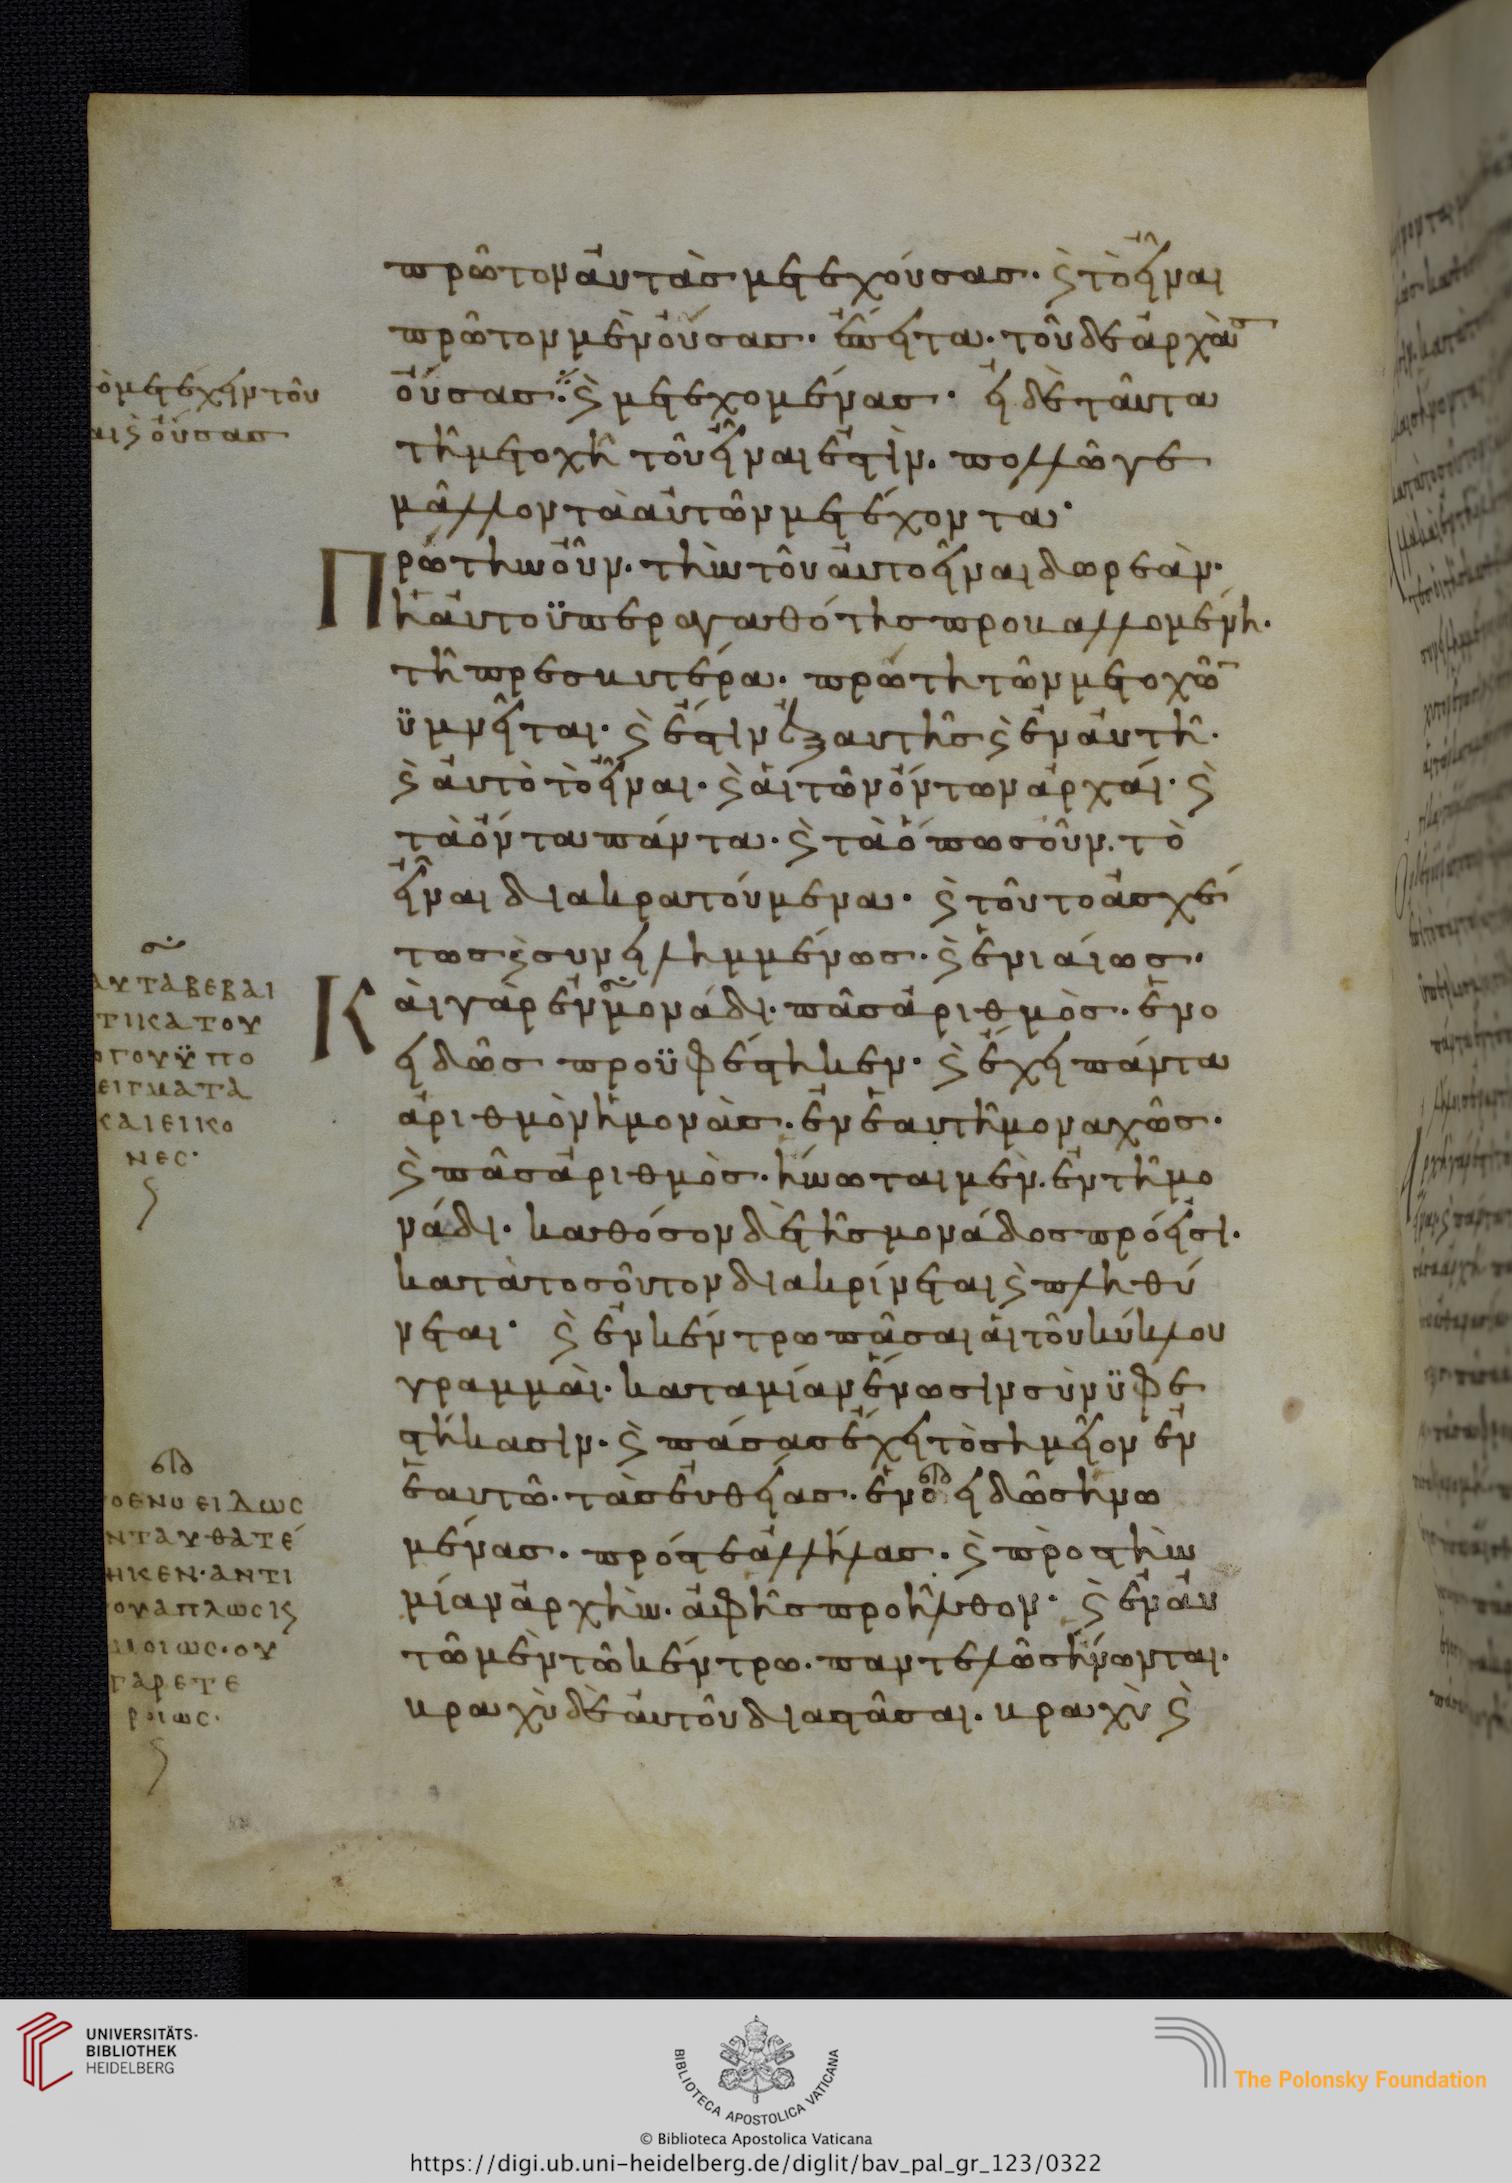 πρῶτον αὐτὰς μετεχούσας. ϗ τὸ εἶναι
πρῶτον μὲν οὔσας. ἔπειτα. τοῦ δε ἀρχὰς
οὔσας. ϗ μετεχομένας. εἰ δὲ ταῦτα
τῆ μετοχῆ τοῦ εἶναι ἐστὶν. πολλῶ γε
μᾶλλον τὰ αὐτῶν μετέχοντα.
Πρώτην οὖν. τὴν τοῦ αὐτοεῖναι δωρεὰν.
ἡ αὐτοϋπεραγαθότης προβαλλομένη.
τῆ πρεσβυτέρα. πρώτη τῶν μετοχῶν
ϋμνεῖται. ϗ ἔστιν ἐξ αυτῆς ϗ ἐν αὐτῆ.
ϗ αὐτὸ τὸ εἶναι. ϗ ἁι τῶν ὄντων ἀρχάι. ϗ
τὰ ὄντα πάντα. ϗ τὰ ὁπωσοῦν. τὸ
εἶναι διακρατούμενα. ϗ τοῦτο ἀσχέ
τως ϗ συνειλημμένως. ϗ ἑνιαίως.
Κὰι γὰρ ἐν μονάδι. πᾶς ἀριθμὸς. ἑνο
ειδῶς προϋφέστηκεν. ϗ ἔχει πάντα
ἀριθμὸν ἡ μονὰς. ἐν ἑαυτῆ μοναχῶς.
ϗ πᾶς ἀριθμὸς. ἥνωται μὲν. ἐν τῆ μο
νάδι. καθόσον δὲ τῆς μονάδος πρόεισι.
κατὰ τοσοῦτον διακρίνεται ϗ πληθύ
νεται. ϗ ἐν κέντρω πᾶσαι ἁι τοῦ κύκλου
γραμμὰι. κατα μίαν ἕνωσιν σὺνϋφε
στήκασιν. ϗ πάσας ἔχει τὸ σημεῖον ἐν
ἑαυτῶ. τὰς ἐυθείας. ἑνοειδῶς ἡνω
μένας. πρός τε ἀλλήλας. ϗ πρὸς τὴν
μίαν ἀρχὴν. ἀφ ῆς προῆλθον. ϗ ἐν αὐ
τῶ μὲν τῶ κέντρω. παντελῶς ἥνωνται.
βραχὺ δὲ ἀυτοῦ διαστᾶσαι. βραχὺ ϗ
ὸ μετέχειν τοῦ
αι ϗ οὔσας
ΑΥΤΑ ΒΕΒΑΙ
ΤΙΚΑ ΤΟΥ
ΟΓΟΥ ΫΠΟ
ΕΙΓΜΑΤΑ
ΚΑΙ ΕΙΚΟ
ΝΕC.
Ο ΕΝΟΕΙΔΩC
ΝΤΑΥΘΑ ΤΕ
ΗΚΕΝ. ΑΝΤΙ
ΟΥ ΑΠΛΩC Ϗ
ΜΟΙΩC. ΟΥ
ΓΑΡ ΕΤΕ
ΡΟΙΩC.
UNIVERSITÄTS-
BIBLIOTHEK
HEIDELBERG
BIBLIOTECA APOSTOLICA VATICANA
© Biblioteca Apostolica Vaticana
The Polonsky Foundation
https://digi.ub.uni-heidelberg.de/diglit/bav_pal_gr_123/0322